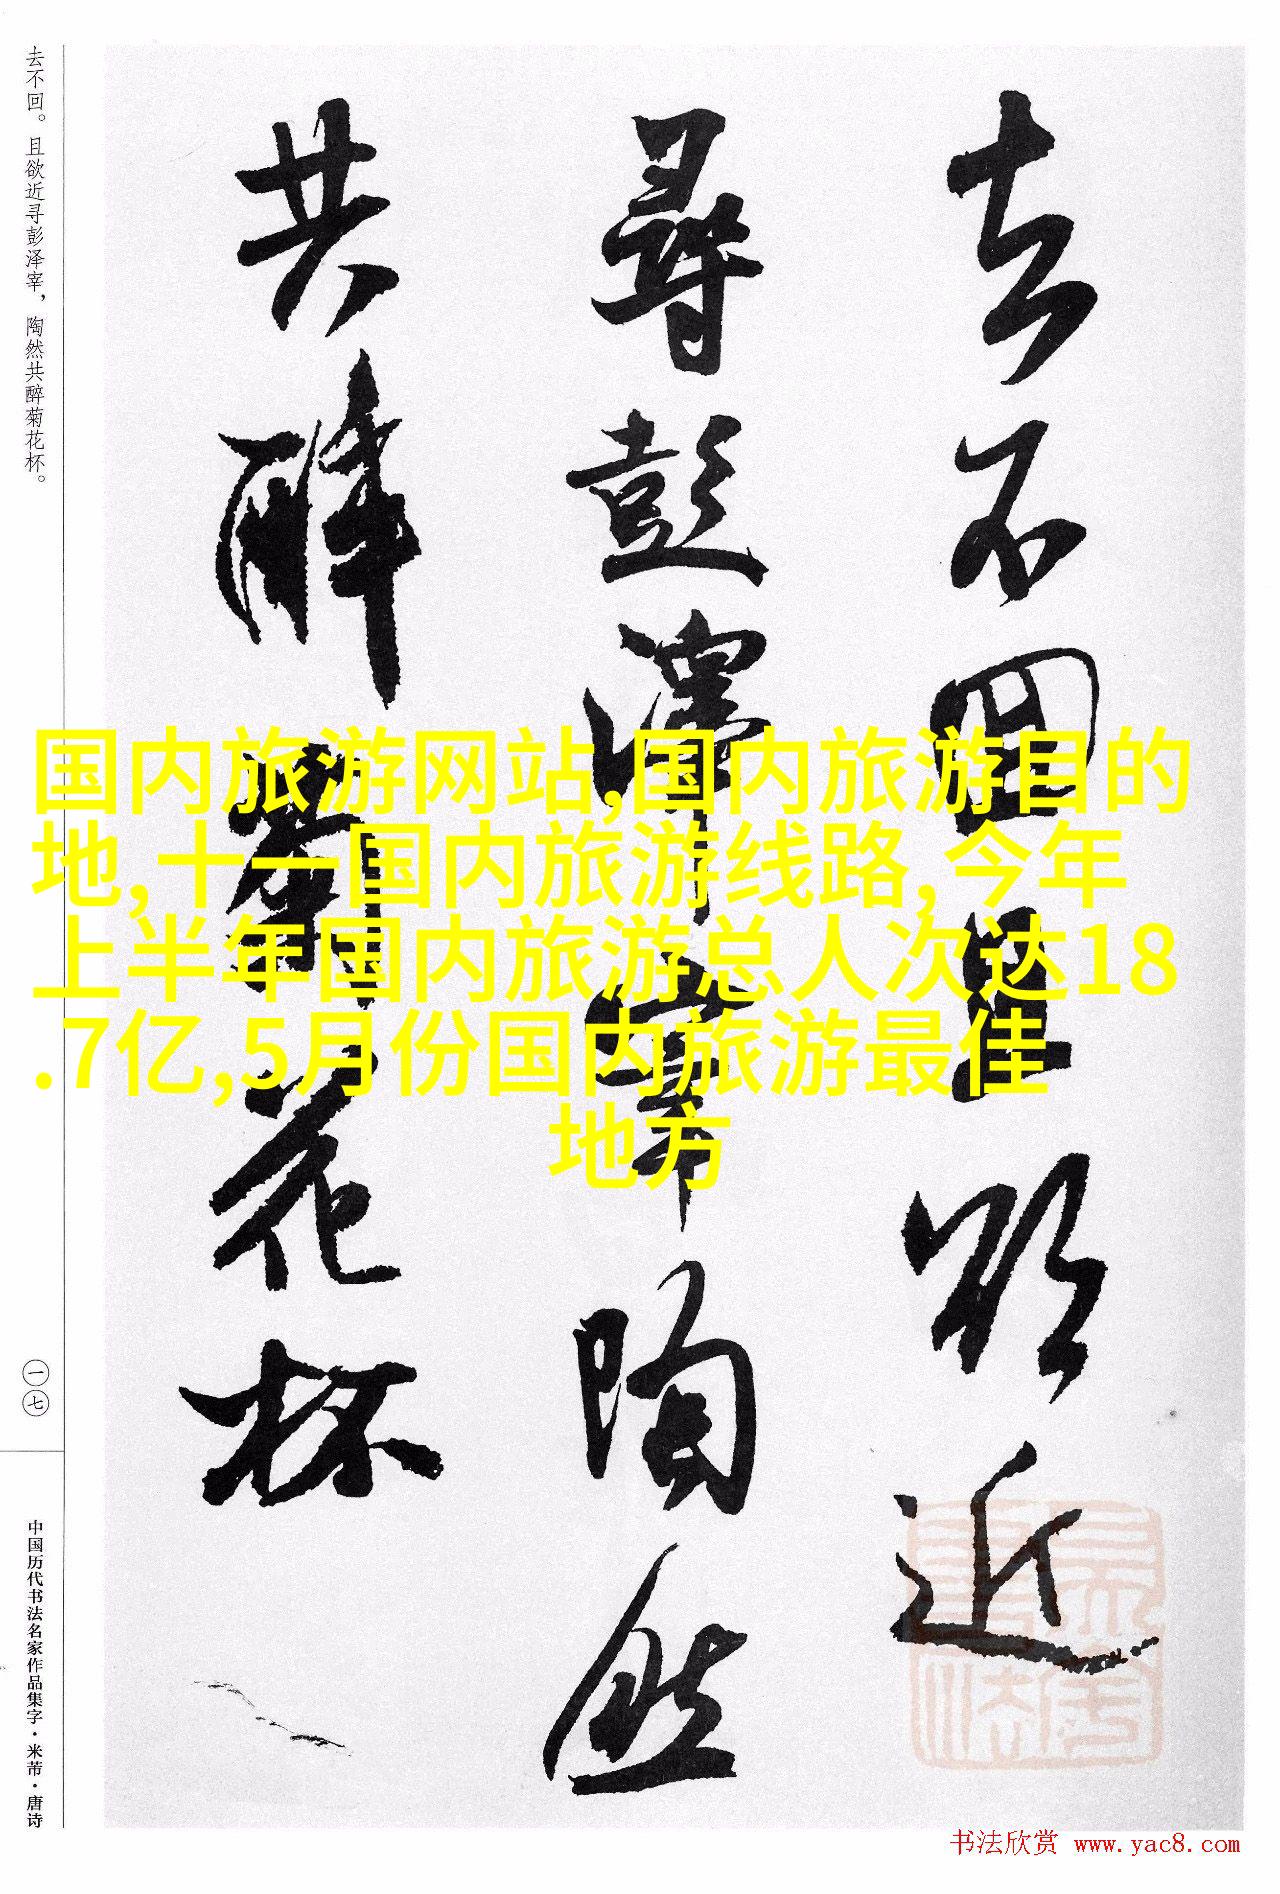 去不回。且欲近寻彭泽宰，陶然共醉菊花杯。
去不回且欲近
尋彭澤宰陶然
共醉菊花杯
国内旅游网站,国内旅游目的
地,十一国内旅游线路,今年
上半年国内旅游总人次达18
.7亿,5月份国内旅游最佳
地方
一七
中国历代书法名家作品集字·米芾·唐诗
书法欣赏 www.yac8.com